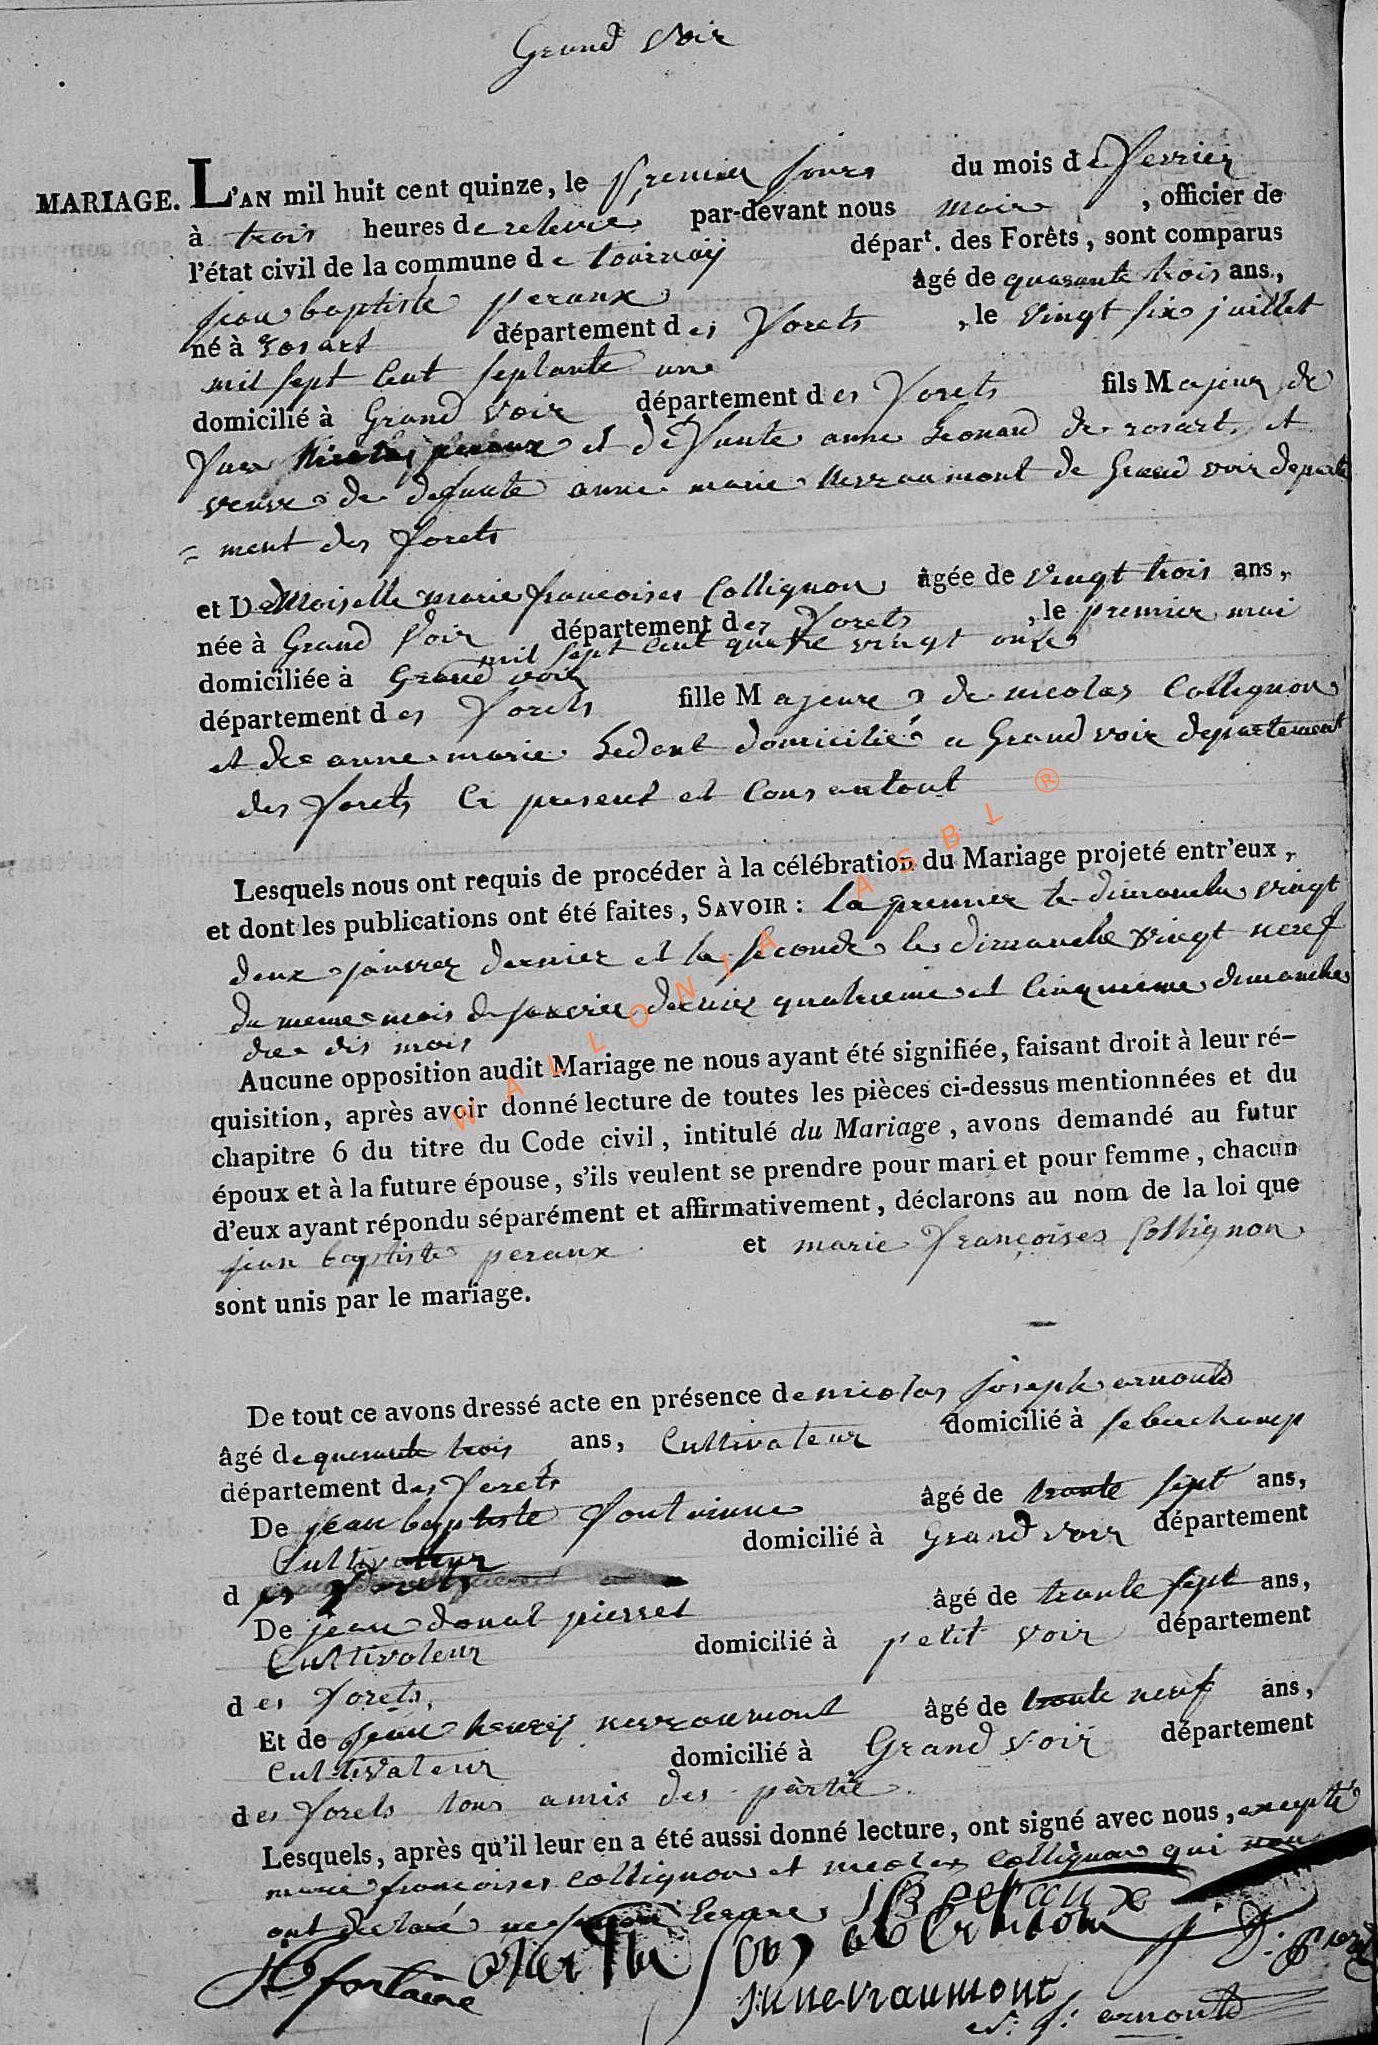 Grand Voir
MARIAGE. L'AN mil huit cent quinze, le premier jour du mois de fevrier
à trois heures de relevée par-devant nous maire, officier de
l'état civil de la commune de tournaÿ départ. des Forêts, sont comparus
jean baptiste peraux âgé de quarante trois ans,
né à rosart département des Forets, le vingt six juillet
mil sept cent septante une
domicilié à Grand Voir département des Forets fils Majeur de
feux Nicolas peraux et deffunte anne Leonard de rosart, et
veuve de defunte anne marie Nevraumont de Grand voir departe
= ment des forets
et Demoiselle marie françoises Collignon âgée de vingt trois ans,
née à Grand Voir département des Forets, le premier mai
mil sept cent quatre vingt onze
domiciliée à Grand voir
département des Forets fille Majeure de nicolas Collignon
et de anne marie Ledent domicilié a Grand voir departement
des Forets Ci present et Consentant
Lesquels nous ont requis de procéder à la célébration du Mariage projeté entr'eux,
et dont les publications ont été faites, SAVOIR : la premier le dimanche vingt
deux janvier dernier et la seconde le dimanche vingt neef
du meme mois de janvier dernier quatrieme et Cinquieme dimanche
de dis mois
Aucune opposition audit Mariage ne nous ayant été signifiée, faisant droit à leur ré-
quisition, après avoir donné lecture de toutes les pièces ci-dessus mentionnées et du
chapitre 6 du titre du Code civil, intitulé du Mariage, avons demandé au futur
époux et à la future épouse, s'ils veulent se prendre pour mari et pour femme, chacun
d'eux ayant répondu séparément et affirmativement, déclarons au nom de la loi que
jean baptiste peraux et marie françoises Collignon
sont unis par le mariage.
De tout ce avons dressé acte en présence de nicolas joseph arnould
âgé de quarante trois ans, Cultivateur domicilié à
département des Forets
De jean baptiste fontainne âgé de trante sept ans,
Cultivateur domicilié à Grand voir département
des Forets
De jean donat pierret âgé de trante sept ans,
Cultivateur domicilié à petit voir département
des Forets,
Et de jean henrÿ nevraumont âgé de trante neuf ans,
Cultivateur domicilié à Grand Voir département
des forets tous amis des partie
Lesquels, après qu'il leur en a été aussi donné lecture, ont signé avec nous, excepté
marie françoises collignon et nicolas collignon qui nous
ont declaré ne Ecrire JB peraux
fontaine
J H nevraumont
N: J: arnould
WALLONIA ASBL ®